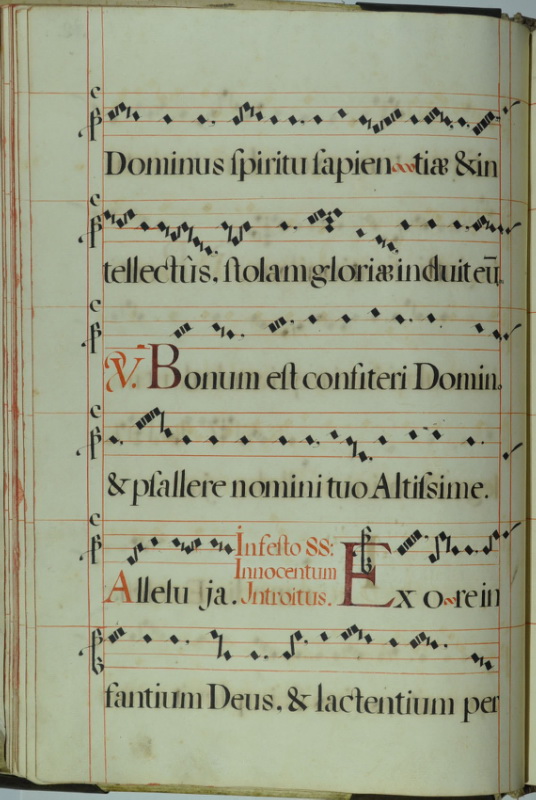 Dominus ſpiritu ſapien tiæ & in
tellectûs. ſtolam gloriæ induit eū.
V. Bonum eſt confiteri Domin.
& pſallere nomini tuo Altiſsime.
Allelu ja. In feſto SS:
Innocentum
Jntroitus. Ex o re in
fantium Deus. & lactentium per